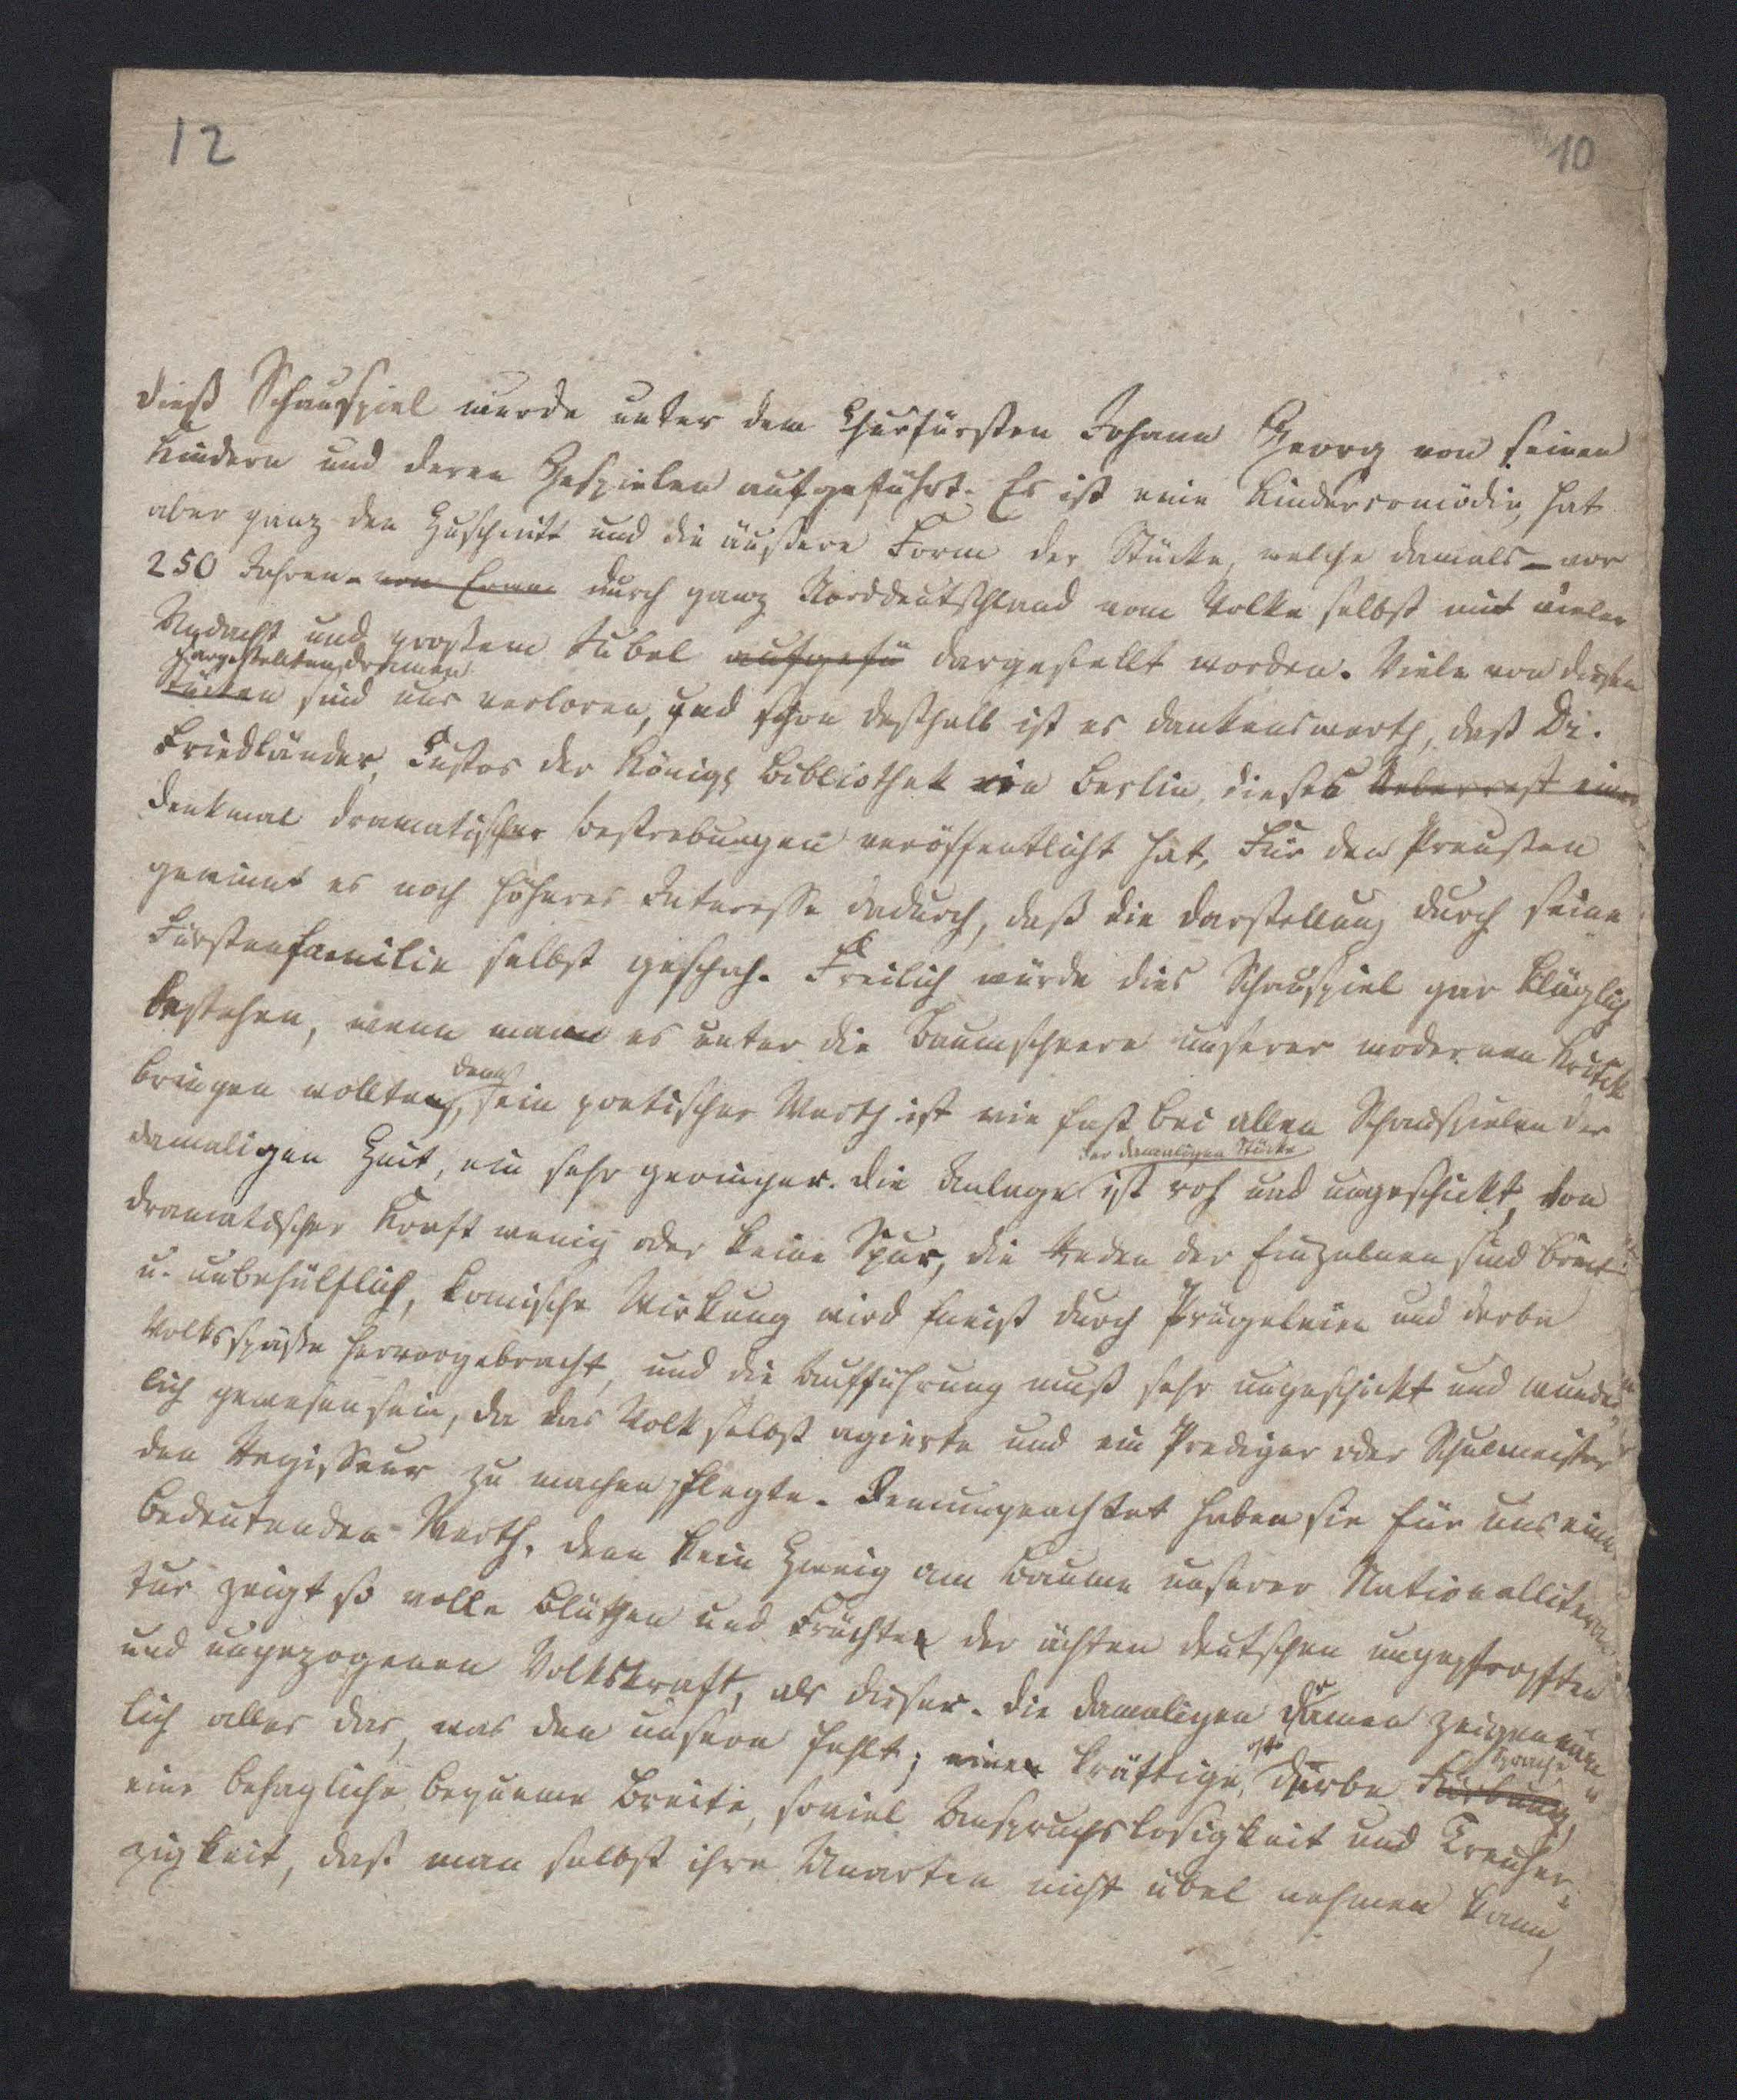 12
10
Dieß Schauspiel wurde unter dem Churfürsten Johann Georg von seinen
Kindern und deren Gespielen aufgeführt. Es ist eine Kindercomödie, hat
aber ganz den Zuschnitt und die äußere Form der Stücke, welche damals – vor
250 Jahren – von durch ganz Norddeutschland vom Volke selbst mit vieler
Andacht und großem Jubel aufgefü dargestellt worden. Viele von diesen
dargestellten Dramen
Stücken sind uns verloren, und schon deßhalb ist es dankenswerth, daß Dr.
Friedländer, Custos der Königl Bibliothek in Berlin, dieses Ueberrest einer
Denkmal dramatischer Bestrebungen veröffentlicht hat. Für den Preußen
gewinnt es noch höheres Interesse dadurch, daß die Darstellung durch seine
Fürstenfamilie selbst geschah. Freilich würde dies Schauspiel gar kläglich
bestehen, wenn man es unter die Baumscheere unserer modernen Kritik
denn
bringen wollte, sein poetischer Werth ist wie fast bei allen Schauspielen der
der damaligen Stücke
damaligen Zeit, ein sehr geringer. Die Anlage ist roh und ungeschickt, von
dramatischer Kraft wenig oder keine Spur, die Reden der Einzelnen sind breit
u. unbehülflich, komische Wirkung wird meist durch Prügeleien und derbe
Volksspäße hervorgebracht, und die Aufführung muß sehr ungeschickt und wunder-
lich gewesen sein, da das Volk selbst agierte und ein Prediger oder Schulmeister
den Regisseur zu machen pflegte. Demungeachtet haben sie für uns einen
bedeutenden Werth, denn kein Zweig am Baume unserer Nationallitera-
tur zeigt so volle Blüthen und Früchte der ächten deutschen ungepfropften
und ungezogenen Volkskraft, als dieser. Die damaligen Dramen zeigen näm-
lich alles das, was den unsern fehlt; eine kräftige, oft derbe Färbung, Sprache
eine behagliche bequeme Breite, soviel Anspruchslosigkeit und Treuher-
zigkeit, daß man selbst ihre Unarten nicht übel nehmen kann,